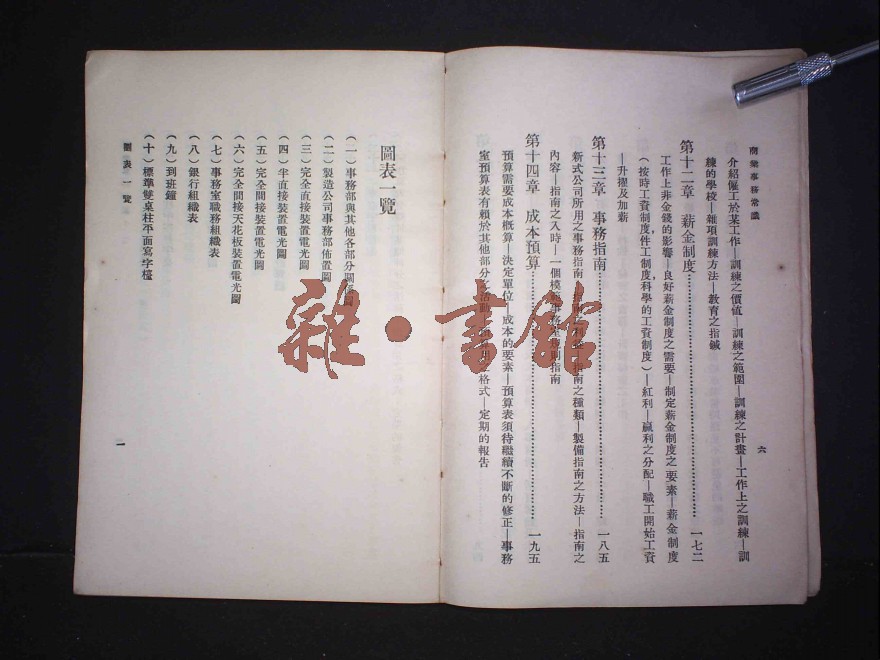 商業事務常識
六
介紹僱工於某工作—訓練之價值—訓練之範圍—訓練之計畫—工作上之訓練—訓
練的學校—雜項訓練方法—教育之指鍼
第十二章　薪金制度……一七二
工作上非金錢的影響—良好薪金制度之需要—制定薪金制度之要素—薪金制度
（按時工資制度，件工制度，科學的工資制度）—紅利—贏利之分配—職工開始工資
—升擢及加薪
第十三章　事務指南……一八五
新式公司所用之事務指南—指南之利益—指南之種類—製備指南之方法—指南之
內容—指南之入時—一個模範事務規則指南
第十四章　成本預算……一九五
預算需要成本概算—決定單位—成本的要素—預算表須待繼續不斷的修正—事務
室預算表有賴於其他部分之活動—格式—定期的報告
圖表一覽
（一）事務部與其他各部分關係圖
（二）製造公司事務部佈置圖
（三）完全直接裝置電光圖
（四）半直接裝置電光圖
（五）完全間接裝置電光圖
（六）完全間接天花板裝置電光圖
（七）事務室職務組織表
（八）銀行組織表
（九）到班鐘
（十）標準雙桌柱平面寫字檯
圖表一覽
一
雜·書館